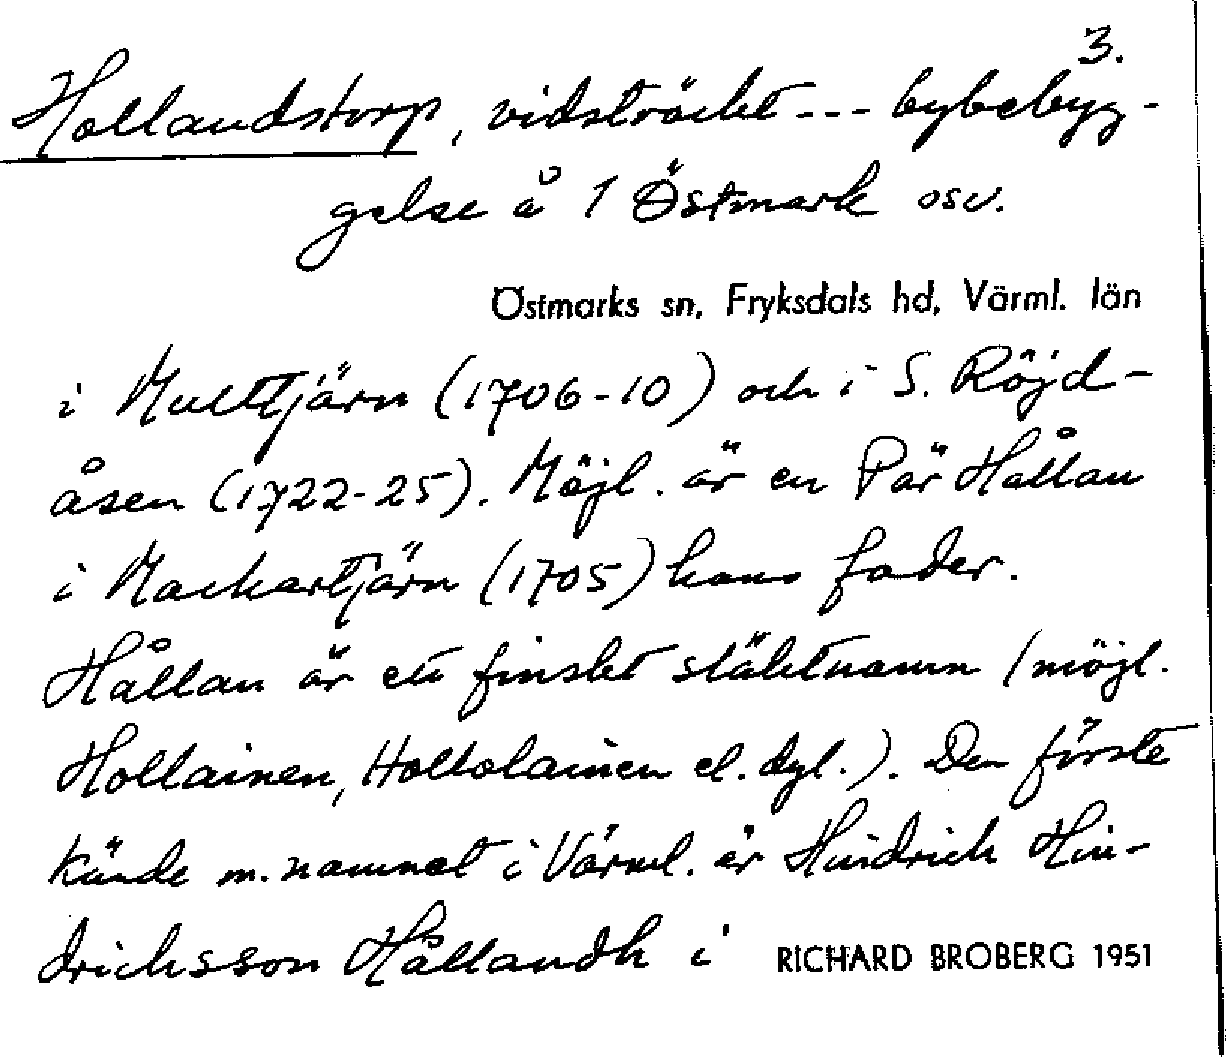 3.
Hollandstorp, vidsträckt --- bybebyg-
gelse å 1 Östmark osv.
Östmarks sn, Fryksdals hd, Värml. län
i Multtjärn (1706-10) och i S. Röjd-
åsen (1722-25). Möjl. är en Pär Hållan
i Mackartjärn (1705) hans fader.
Hållan är ett finskt släktnamn (möjl.
Hollainen, Hollolainen el. dyl.). Den förste
kände m. namnet i Värml. är Hindrich Hin-
drichsson Hållandh i
RICHARD BROBERG 1951